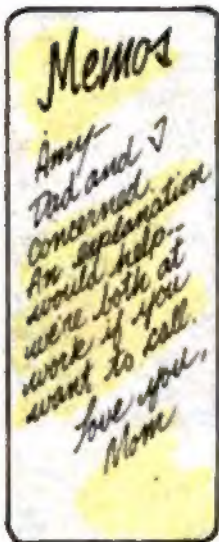 Memos
Amy-
Dad and I
concerned.
An explanation
would help--
we're both at
work if you
want to call.
Love you,
Mom